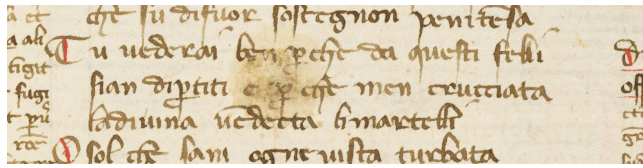 che su difuor sostegnon penitẽsa
Tu uederai ben ꝑche da questi felli
sian diꝑtiti e ꝑ che men crucciata
ladiuina uẽdecta li martelli
O sol che sani ogne uista turbata